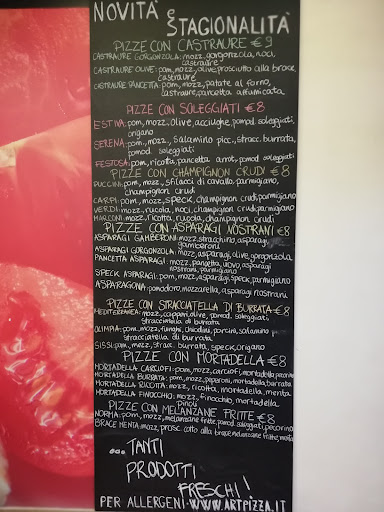 NOVITÀ e STAGIONALITÀ
PIZZE CON CASTRAURE €9
CASTRAURE GORGONZOLA: mozz, gorgonzola, noci, castraure
CASTRAURE OLIVE: pom, mozz, olive, prosciutto alla brace, castraure
CASTRAURE PANCETTA: pom, mozz, patate al forno, castraure, pancetta affumicata
PIZZE CON SOLEGGIATI €8
ESTIVA: pom, mozz, olive, acciughe, pomod. soleggiati, origano
SERENA: pom., mozz., salamino picc., stracc. burrata, pomod. soleggiati
FESTOSA: pom, ricotta, pancetta arrot, pomod. soleggiati
PIZZE CON CHAMPIGNON CRUDI €8
PUCCINI: pom, mozz, sfilacci di cavallo, parmigiano, champignon crudi
CARPI: pom, mozz, speck, champignon crudi, parmigiano
VERDI: mozz, rucola, noci, champignon crudi, parmigiano
MARCONI: mozz, ricotta, rucola, champignon crudi
PIZZE CON ASPARAGI NOSTRANI €8
ASPARAGI GAMBERONI: mozz, stracchino, asparagi, gamberoni
ASPARAGI GORGONZOLA: mozz, asparagi, olive, gorgonzola
PANCETTA ASPARAGI: mozz, pancetta, uovo, asparagi nostrani, parmigiano
SPECK ASPARAGI: pom, mozz, asparagi, speck, parmigiano
ASPARAGONA: pomodoro, mozzarella, asparagi nostrani
PIZZE CON STRACCIATELLA DI BURRATA €8
MEDITERRANEA: mozz, capperi, olive, pomod. soleggiati, stracciatella di burrata
OLIMPIA: pom, mozz, funghi, chiodini, porcini, salamino p. stracciatella di burrata
SISSI: pom., mozz, strac. burrata, speck, origano
PIZZE CON MORTADELLA €8
MORTADELLA CARCIOFI: pom, mozz, carciofi, mortadella, pecorino
MORTADELLA BURRATA: pom, mozz, peperoni, mortadella, burrata
MORTADELLA RICOTTA: mozz, ricotta, mortadella, menta
MORTADELLA FINOCCHIO: mozz, finocchio, mortadella, pinoli
PIZZE CON MELANZANE FRITTE €8
NORMA: pom, mozz, melanzane fritte, pomod. soleggiati, pecorino
BRACE MENTA: mozz, prosc. cotto alla brace, melanzane fritte, menta
...TANTI
PRODOTTI
FRESCHI!
PER ALLERGENI · WWW.ARTPIZZA.IT